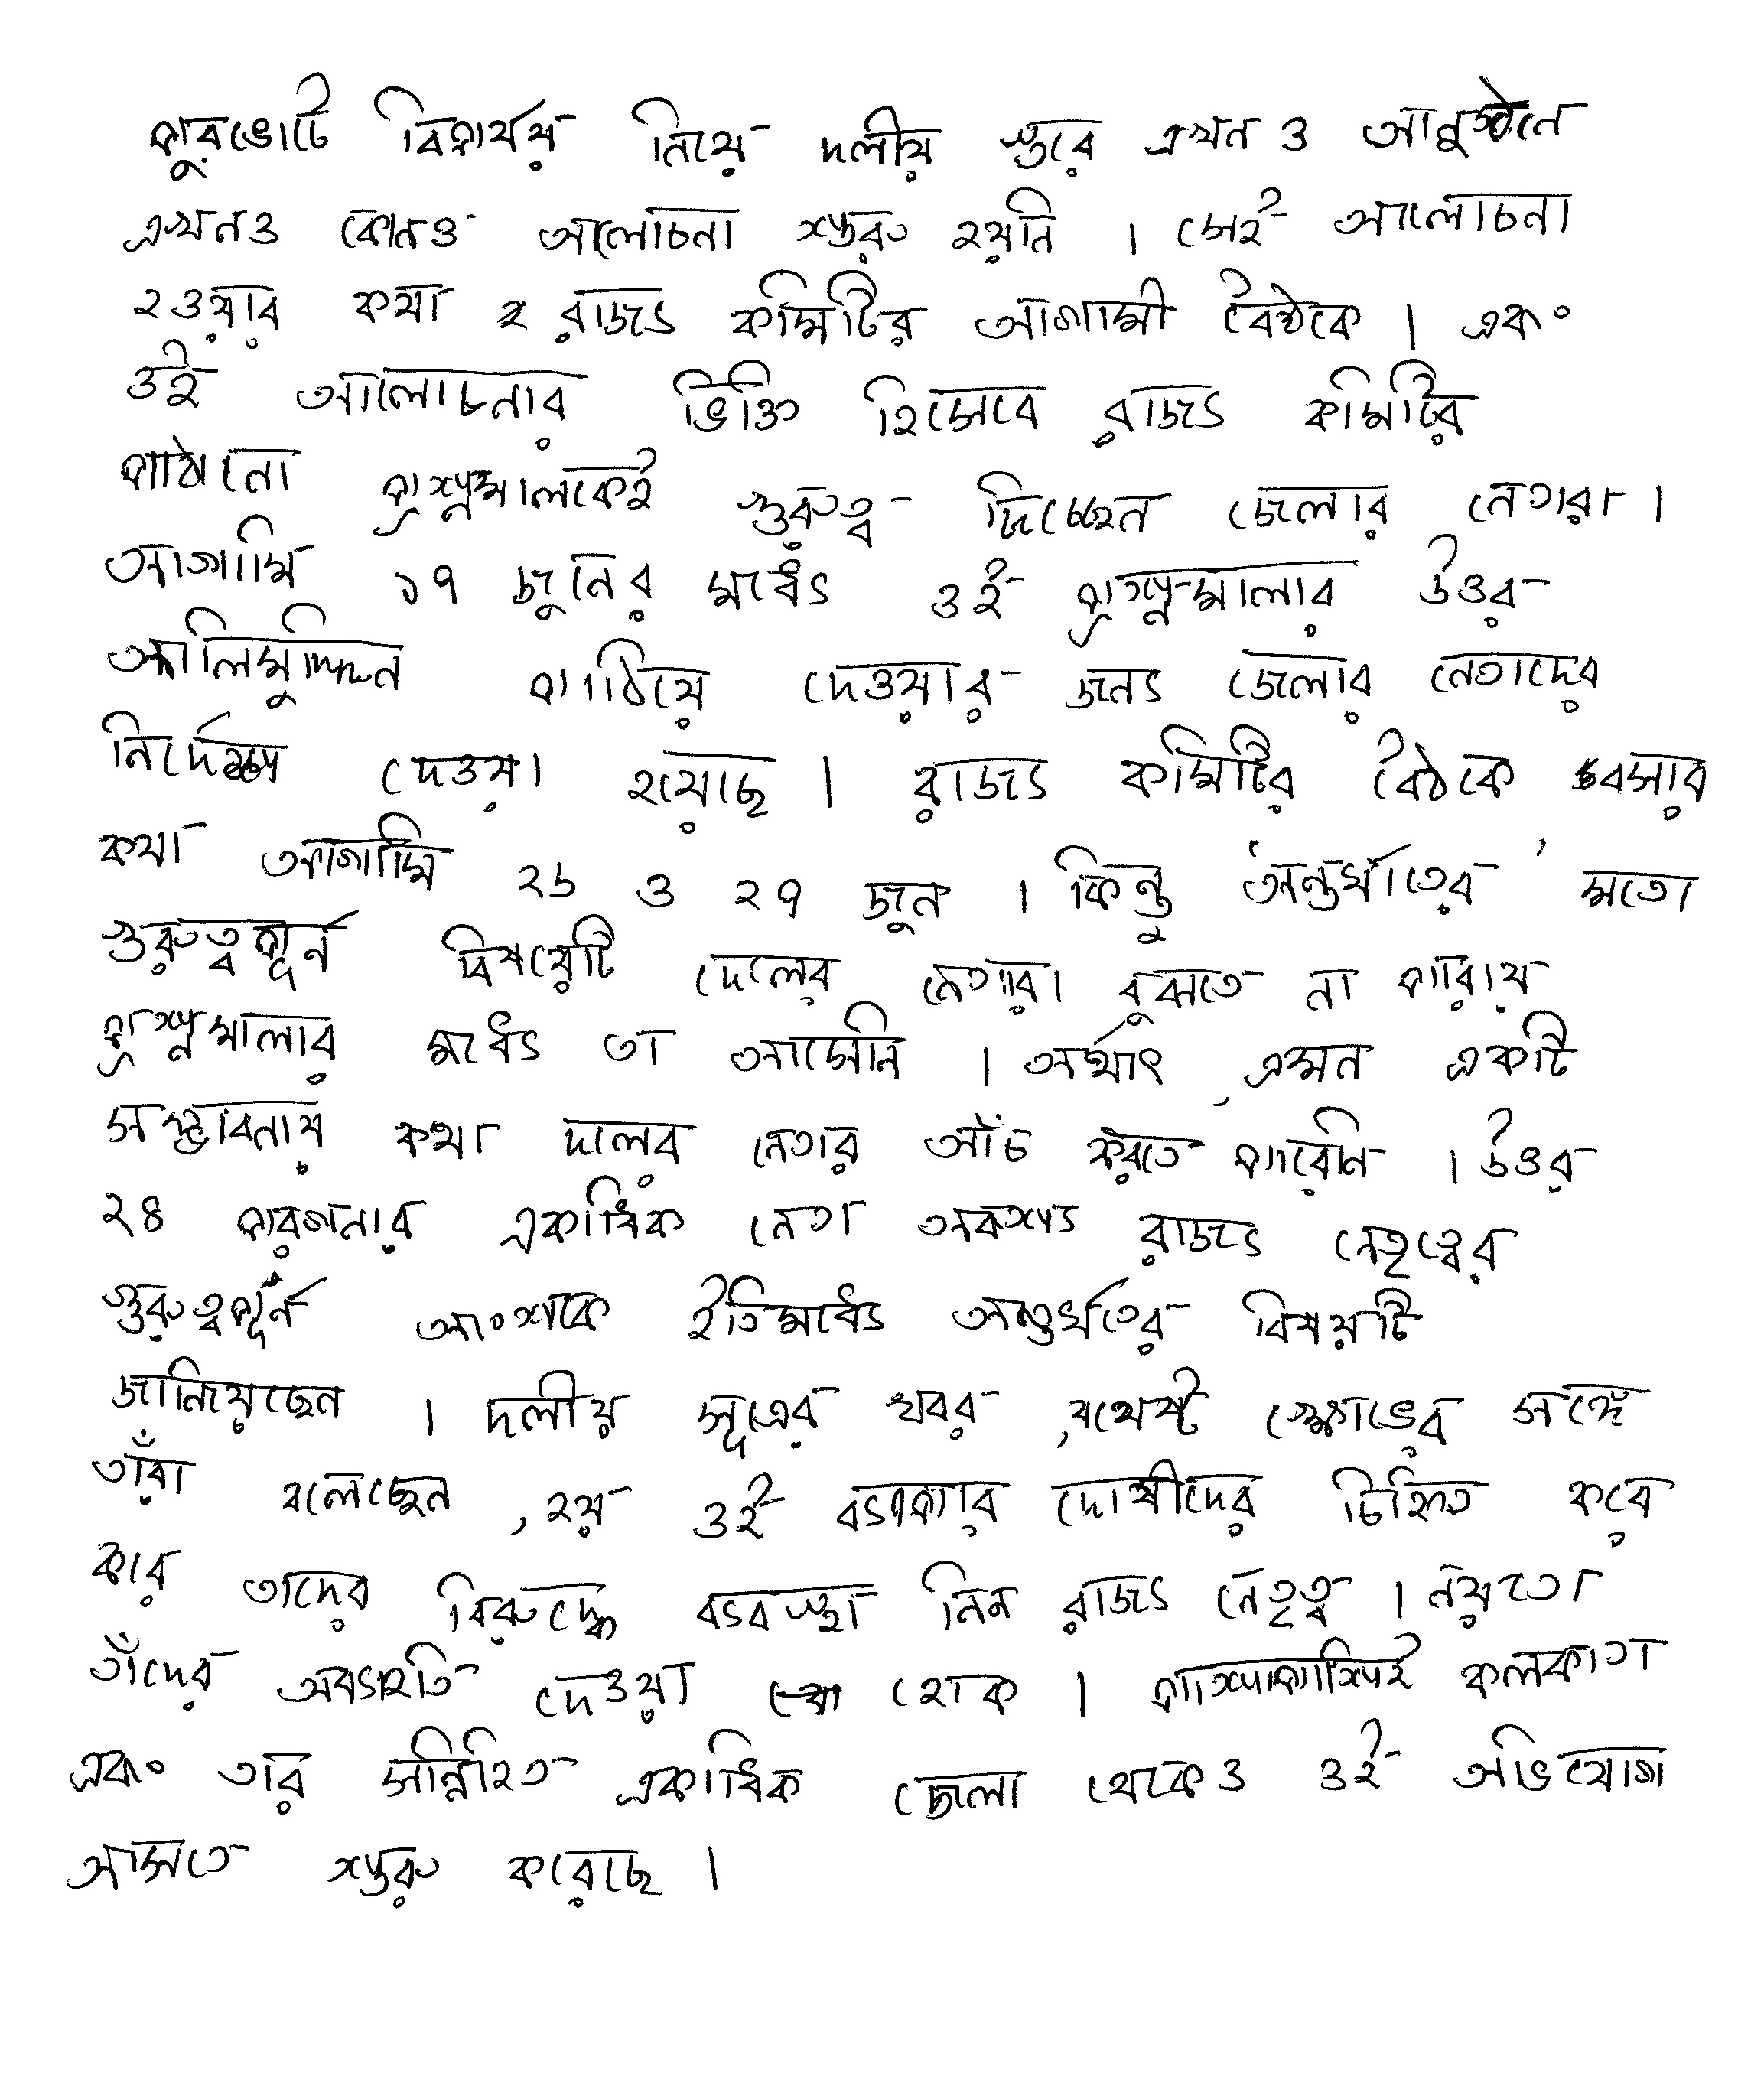 পুরভোটে বিপর্যয় নিয়ে দলীয় স্তরে এখন ও আনুষ্ঠানে
এখনও কোনও আলোচনা শুরু হয়নি । সেই আলোচনা
হওয়ার কথা রাজ্য কমিটির আগামী বৈঠকে । এবং
ওই আলোচনার ভিত্তি হিসেবে রাজ্য কমিটির
পাঠানো প্রশ্নমালকেই গুরুত্ব দিচ্ছেন জেলার নেতারা ।
আগামি ১৭ জুনের মধ্যে ওই প্রশ্নমালার উত্তর
আলিমুদ্দিন পাঠিয়ে দেওয়ার জন্য জেলার নেতাদের
নির্দেশ দেওয়া হয়েছে । রাজ্য কমিটির বৈঠকে বসার
কথা আগামি ২৬ ও ২৭ জুন । কিন্তু 'অন্তর্ঘাতের' মতো
গুরুত্বপূর্ন বিষয়েটি দেলের নেতারা বুঝতে না পারায়
প্রশ্নমালার মধ্যে তা আসেনি । অর্থাৎ, এমন একটি
সম্ভাবনায় কথা দলের নেতার আঁচ করতে পারেনি । উত্তর
২৪ পরগনার একাধিক নেতা অবশ্য রাজ্য নেতৃত্বের
গুরুত্বপূর্ন আংশকে ইতিমধ্যে অন্তর্ঘতের বিষয়টি
জানিয়েছেন । দলীয় সূত্রের খবর ,যথেষ্ট ক্ষোভের সঙ্গে
তাঁরা বলেছেন ,হয় ওই ব্যপার দোষীদের চিহ্নিত করে
করে তাদের বিরুদ্ধে ব্যবস্থা নিন রাজ্য নেতৃত্ব । নয়তো
তাঁদের অব্যহতি দেওয়া হোক । পাশাপাশিই কলকাতা
এবং তার সন্নিহিত একাধিক জেলা থেকেও ওই অভিযোগ
আসতে শুরু করেছে ।